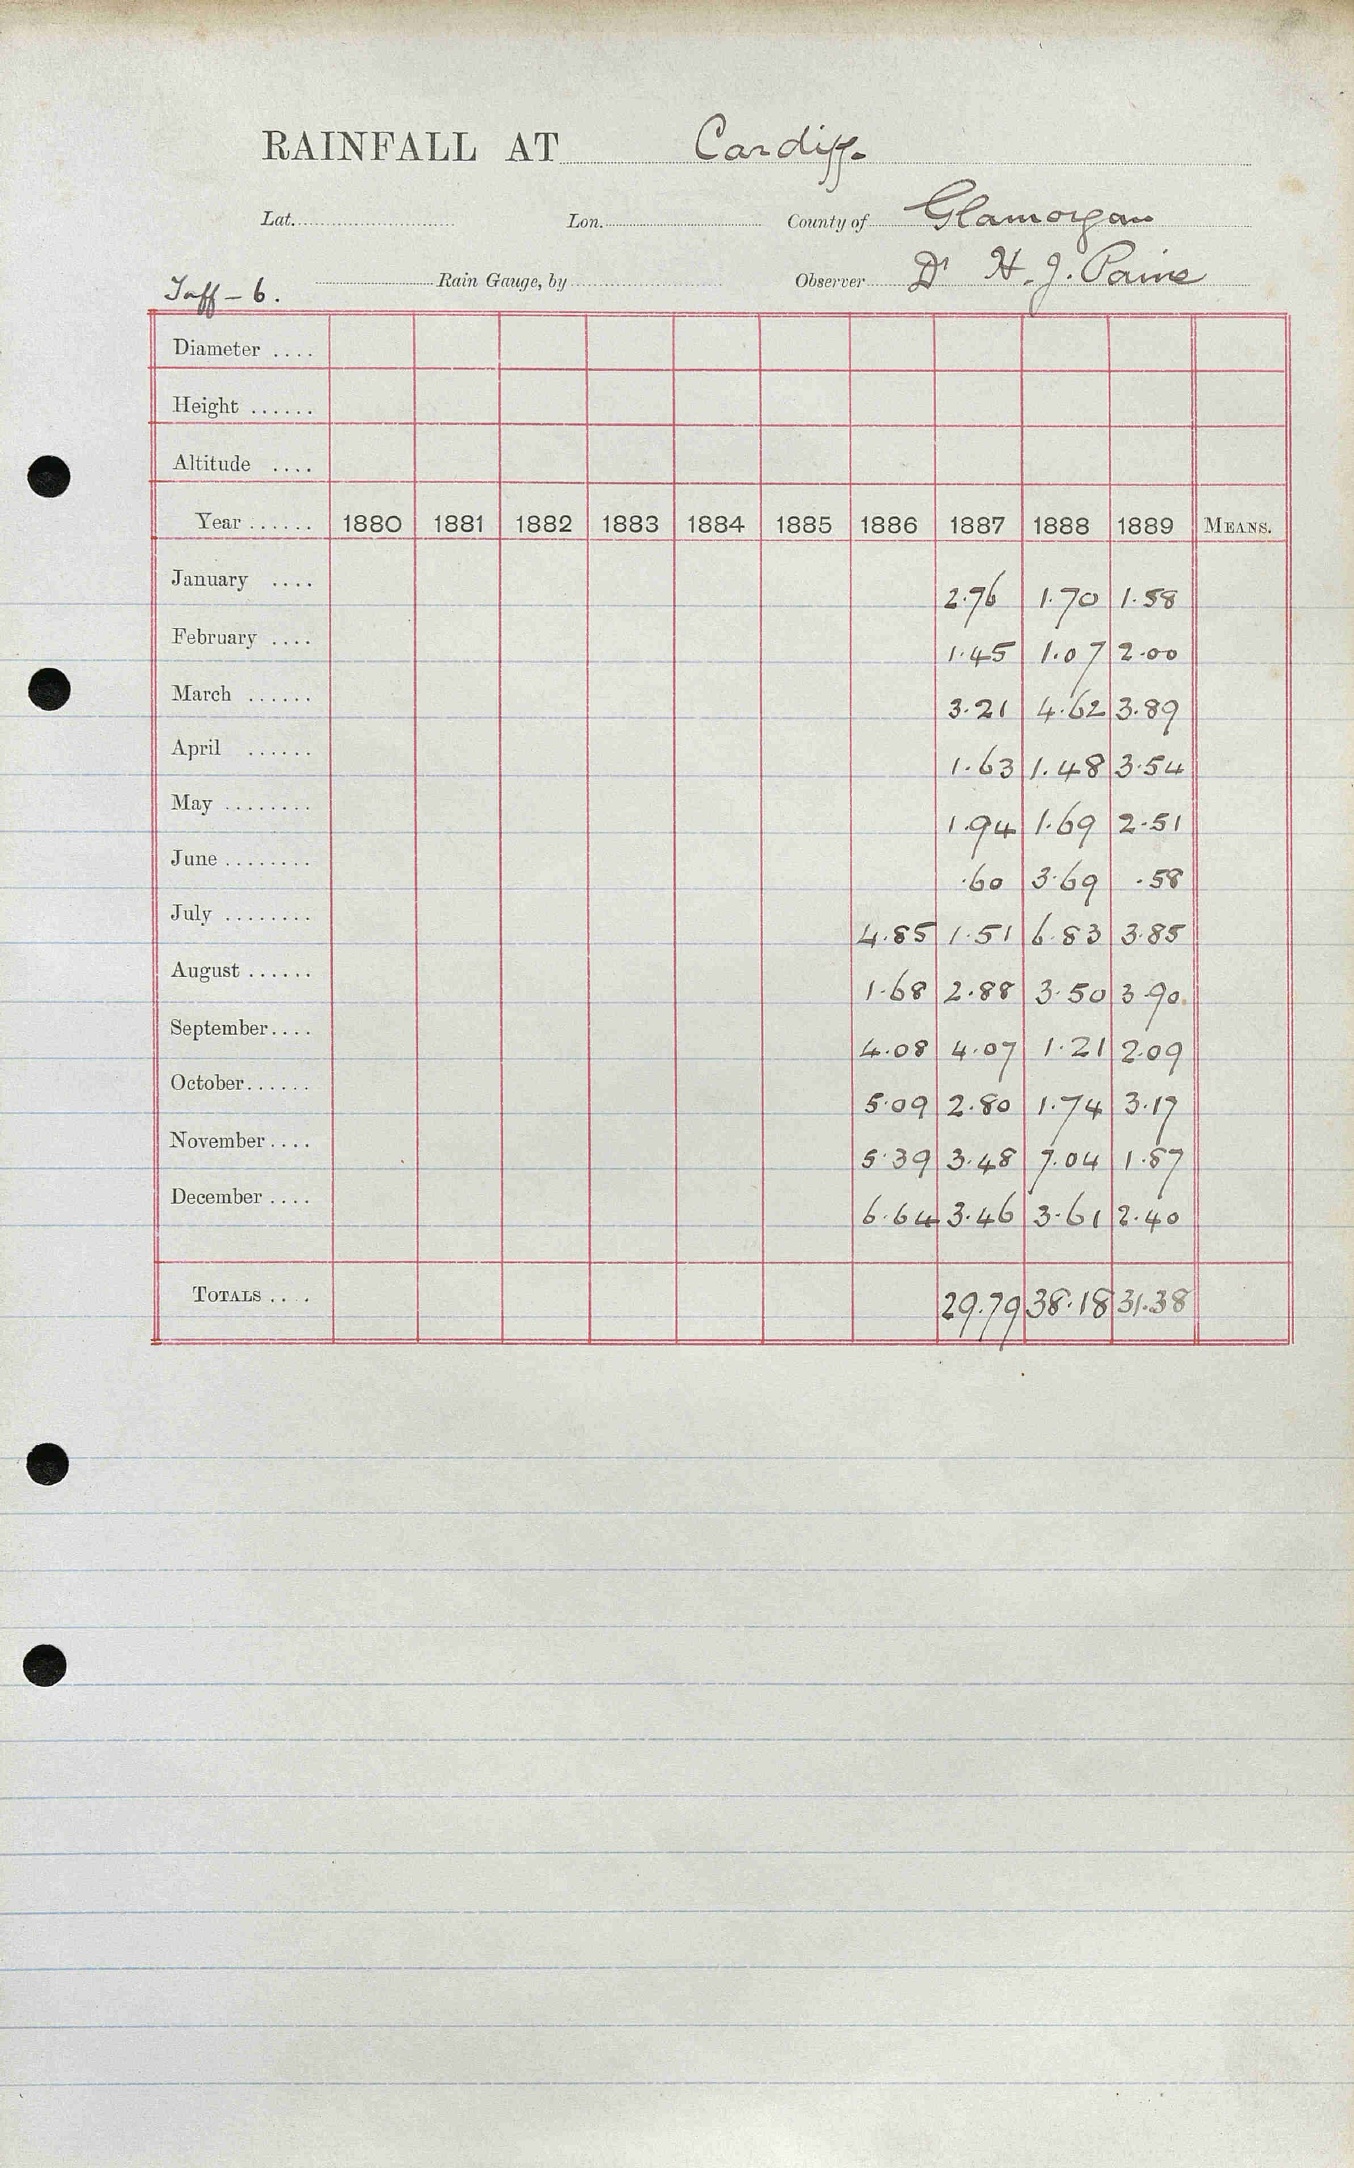 RAINFALL AT Cardiff.
Lat. Lon. County of Glamorgan
Taff - 6. Rain Gauge, by Observer Dr H. J. Paine
Diameter ....
Height ......
Altitude ....
Year ...... 1880 1881 1882 1883 1884 1885 1886 1887 1888 1889 MEANS.
January .... 2.76 1.70 1.58
February .... 1.45 1.07 2.00
March ...... 3.21 4.62 3.89
April ...... 1.63 1.48 3.54
May ........ 1.94 1.69 2.51
June ........ .60 3.69 .58
July ........ 4.85 1.51 6.83 3.85
August ...... 1.68 2.88 3.50 3.90
September.... 4.08 4.07 1.21 2.09
October...... 5.09 2.80 1.74 3.17
November.... 5.39 3.48 7.04 1.87
December .... 6.64 3.46 3.61 2.40
TOTALS .... 29.79 38.18 31.38